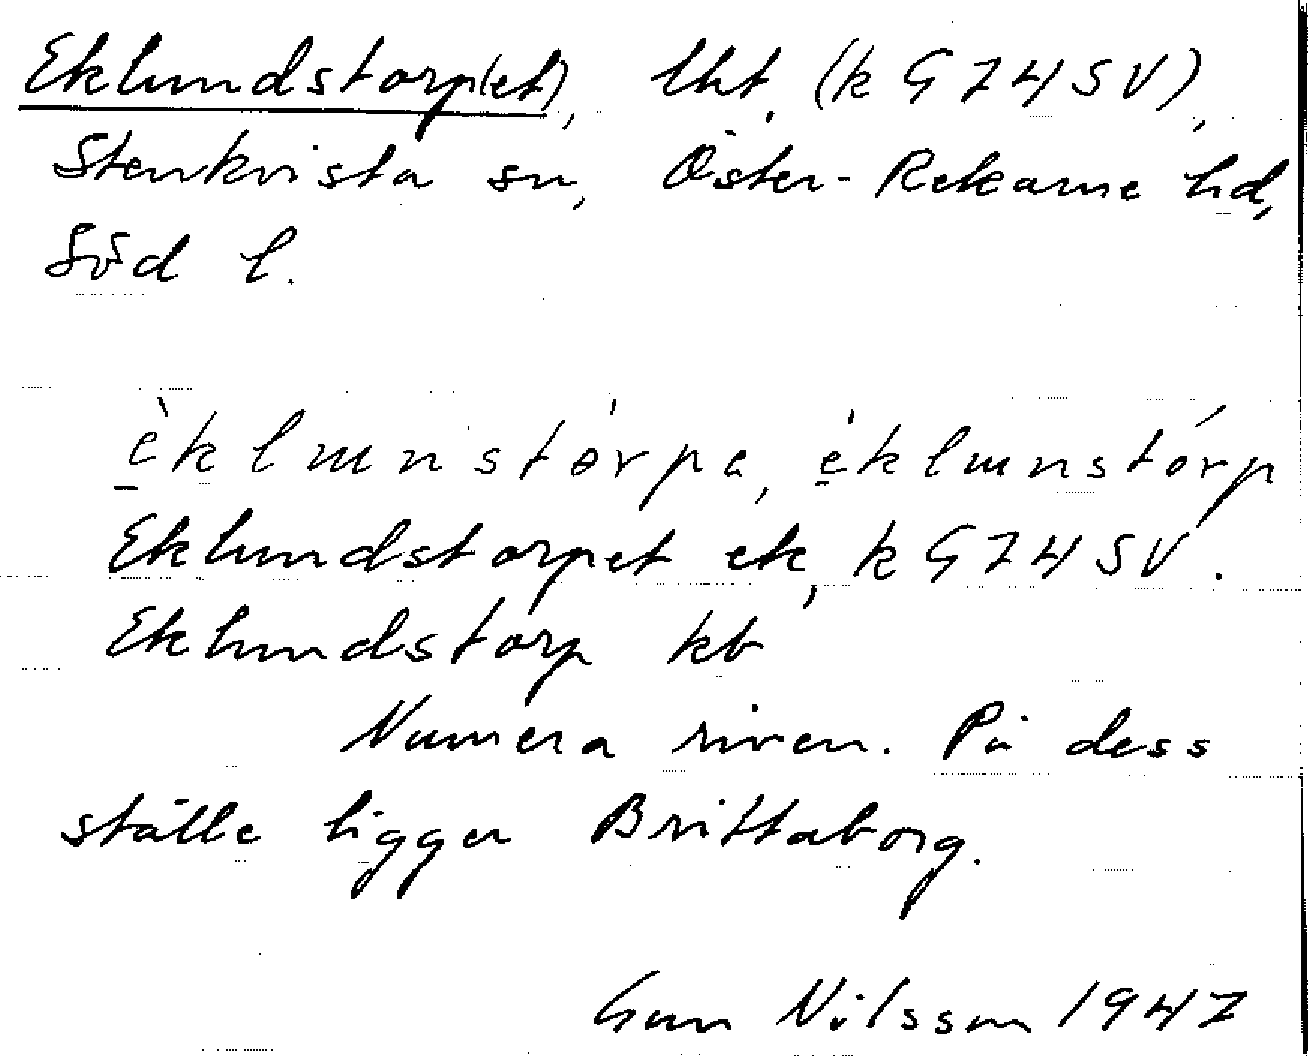 Eklundstorp(et), lht. (k G74SV),
Stenkvista sn, Öster-Rekarne hd,
Söd l.
èklɯnstórpe, éklɯnstórp
Eklundstorpet ek, k G74SV.
Eklundstorp kb
Numera riven. På dess
ställe ligger Brittaborg.
Gun Nilsson 1947